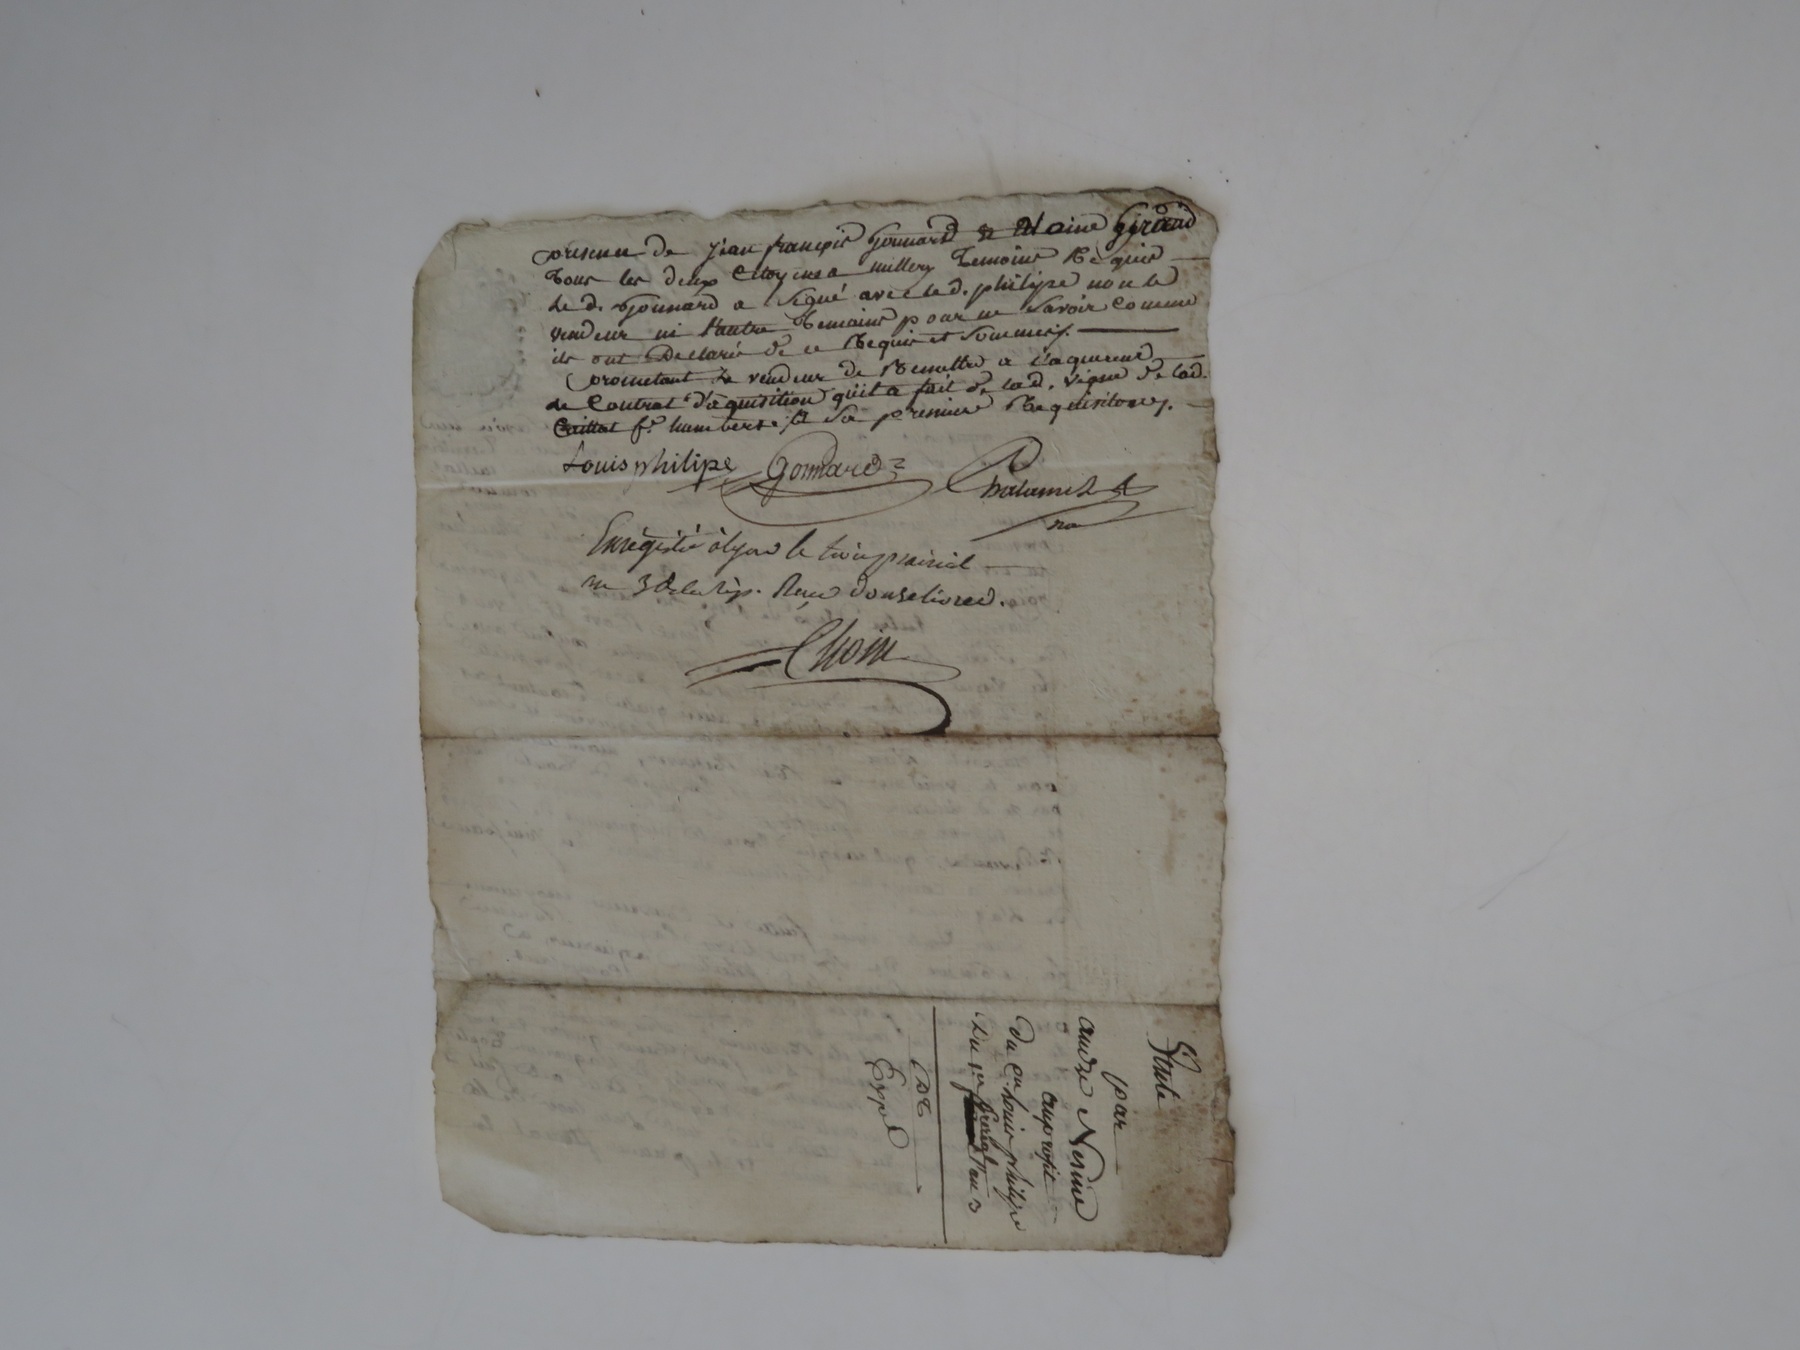 presence de jean françois Gonnard & Blaise Giraud
tous les deux Citoyens a millery temoins Requis
le d. Gonnard a signé avec led. philipe non le
vendeur ni l'autre temoins pour ne savoir comme
ils ont declaré de ce Requis et sommés.
prometant le vendeur de Remettre a l'aquereur
le Contrat d'aquisition qu'il a fait de lad. vigne de lad.
fe. humbert a sa premiere Requisitory.
Louis philipe Gonnard Chalamel
no
Enregistré à lyon le trois prairial
an 3 de la rép. Reçu douze livres.
Choin
Vente
par
andre Nesme
au profit
du Cn. Louis philipe
du 1er prairial l'an 3
Exped